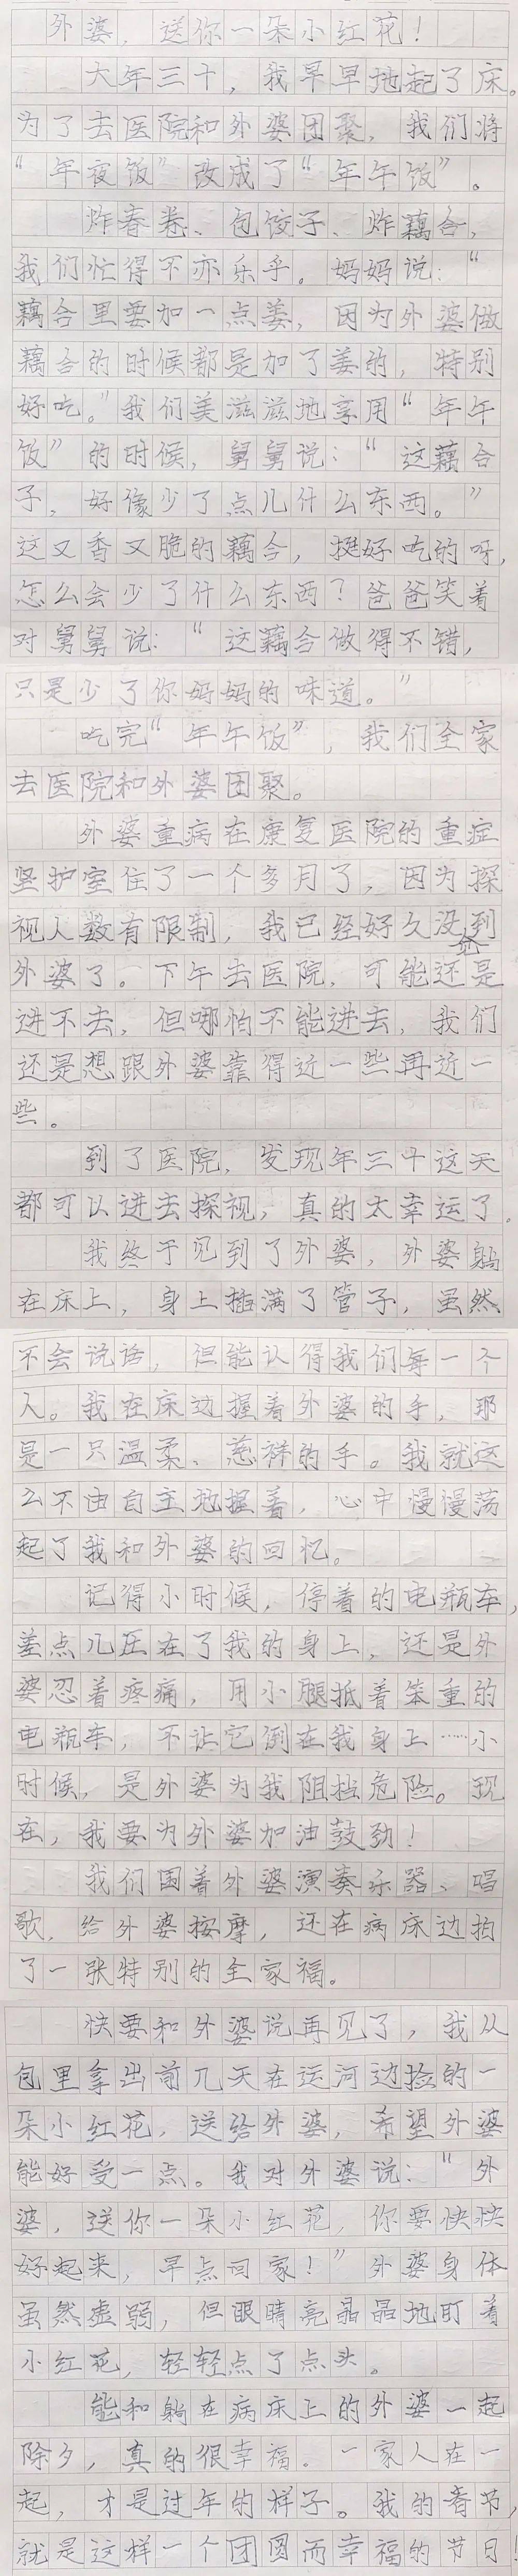 外婆，送你一朵小红花！
大年三十，我早早地起了床。
为了去医院和外婆团聚，我们将
“年夜饭”改成了“年午饭”。
炸春卷、包饺子、炸藕合，
我们忙得不亦乐乎。妈妈说：“
藕合里要加一点姜，因为外婆做
藕合的时候都是加了姜的，特别
好吃。”我们美滋滋地享用“年午
饭”的时候，舅舅说：“这藕合
子，好像少了点儿什么东西。”
这又香又脆的藕合，挺好吃的呀，
怎么会少了什么东西？爸爸笑着
对舅舅说：“这藕合做得不错，
只是少了你妈妈的味道。”
吃完“年午饭”，我们全家
去医院和外婆团聚。
外婆重病在康复医院的重症
坚护室住了一个多月了，因为探
视人数有限制，我已经好久没见到
外婆了。下午去医院，可能还是
进不去，但哪怕不能进去，我们
还是想跟外婆靠得近一些再近一
些。
到了医院，发现年三十这天
都可以进去探视，真的太幸运了。
我终于见到了外婆，外婆躺
在床上，身上插满了管子，虽然
不会说话，但能认得我们每一个
人。我在床边握着外婆的手，那
是一只温柔、慈祥的手。我就这
么不由自主地握着，心中慢慢荡
起了我和外婆的回忆。
记得小时候，停着的电瓶车，
差点儿压在了我的身上，还是外
婆忍着疼痛，用小腿抵着笨重的
电瓶车，不让它倒在我身上……小
时候，是外婆为我阻挡危险。现
在，我要为外婆加油鼓劲！
我们围着外婆演奏乐器、唱
歌，给外婆按摩，还在病床边拍
了一张特别的全家福。
快要和外婆说再见了，我从
包里拿出前几天在运河边捡的一
朵小红花，送给外婆，希望外婆
能好受一点。我对外婆说：“外
婆，送你一朵小红花，你要快快
好起来，早点回家！”外婆身体
虽然虚弱，但眼睛亮晶晶地盯着
小红花，轻轻点了点头。
能和躺在病床上的外婆一起
除夕，真的很幸福。一家人在一
起，才是过年的样子。我的春节，
就是这样一个团圆而幸福的节日！